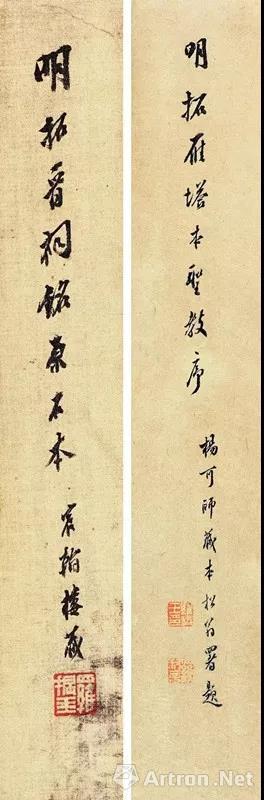 明拓雁塔本聖教序
楊可師藏本松翁署題
明拓晉祠銘原石本
宸翰樓藏
羅振玉
Artron.Net